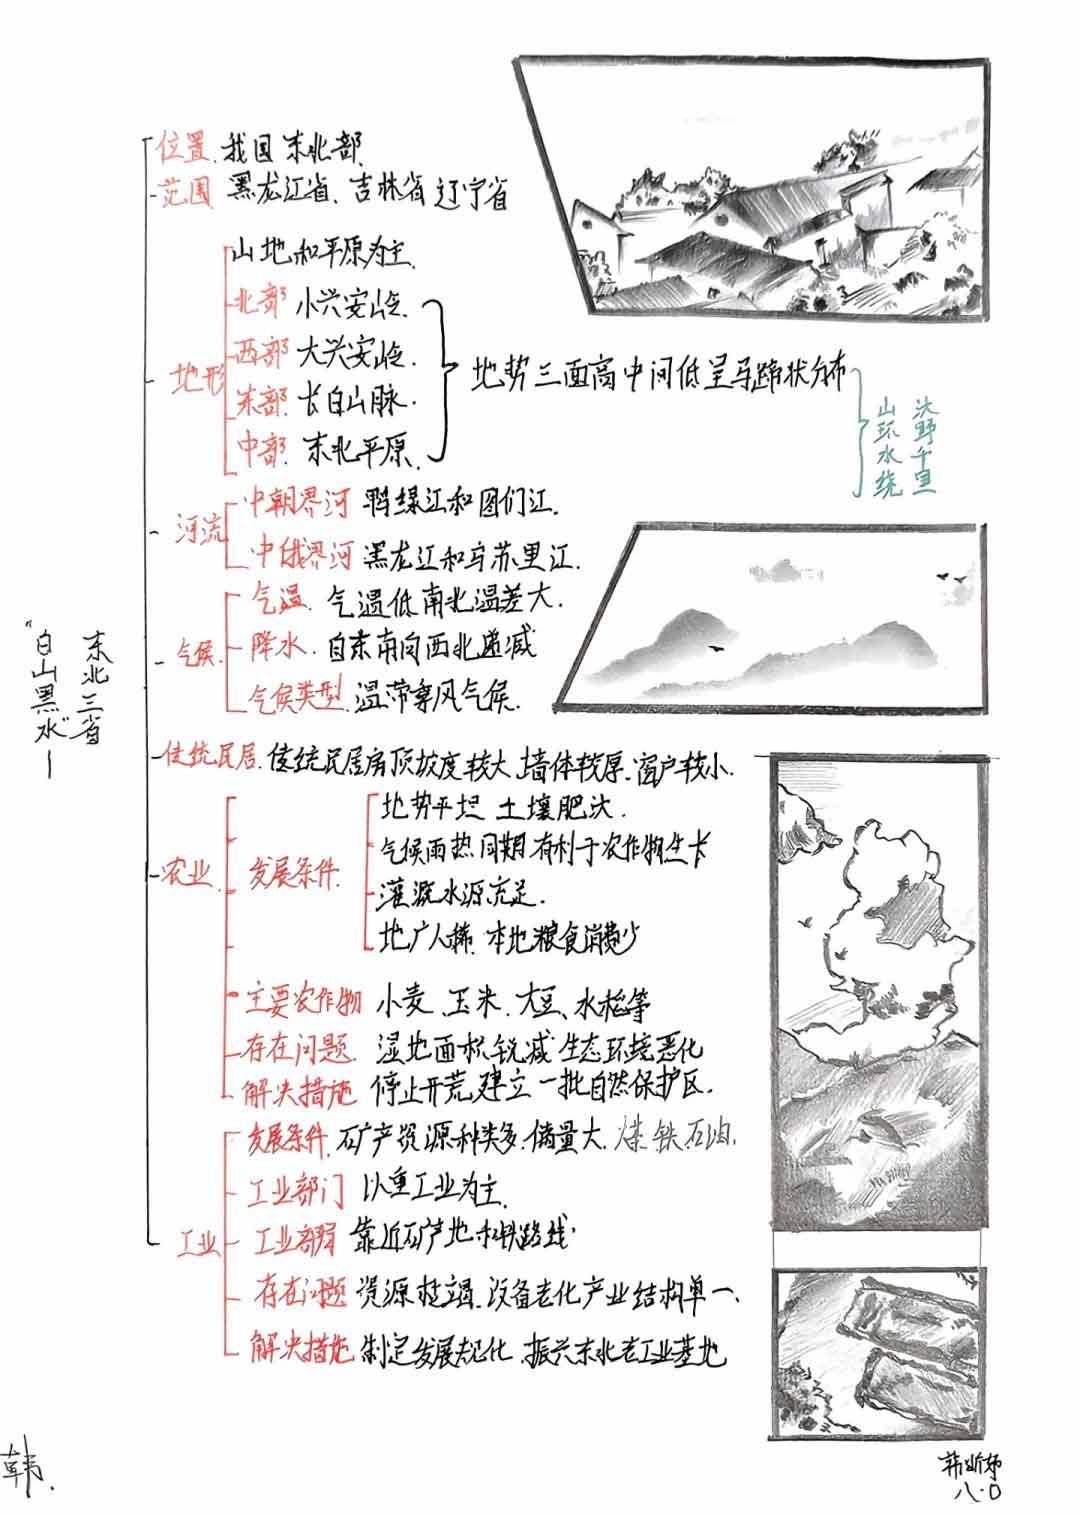 东北三省
“白山黑水”
位置 我国东北部
范围 黑龙江省、吉林省 辽宁省
地形
山地和平原为主
北部 小兴安岭
西部 大兴安岭
东部 长白山脉
中部 东北平原
地势三面高中间低呈马蹄状分布
山环水绕
沃野千里
河流
中朝界河 鸭绿江和图们江
中俄界河 黑龙江和乌苏里江
气候
气温 气温低南北温差大
降水 自东南向西北递减
气候类型 温带季风气候
传统民居 传统民居房顶坡度较大 墙体较厚 窗户较小
农业
发展条件
地势平坦 土壤肥沃
气候雨热同期有利于农作物生长
灌溉水源充足
地广人稀 本地粮食消费少
主要农作物 小麦、玉米、大豆、水稻等
存在问题 湿地面积锐减 生态环境恶化
解决措施 停止开荒 建立一批自然保护区
工业
发展条件 矿产资源种类多 储量大 煤 铁 石油
工业部门 以重工业为主
工业部 靠近矿产地和铁路线
存在问题 资源枯竭 设备老化 产业结构单一
解决措施 制定发展规化 振兴东北老工业基地
韩
八.